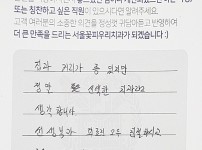 또는 칭찬하고 싶은 직원이 있으시다면 알려주세요.
고객 여러분의 소중한 의견을 정성껏 귀담아듣고 반영하여
더 큰 만족을 드리는 서울꽃피우리치과가 되겠습니다 :)
집과 거리가 좀 있지만
정말 친절한 치과라고
생각합니다
선생님과 모든